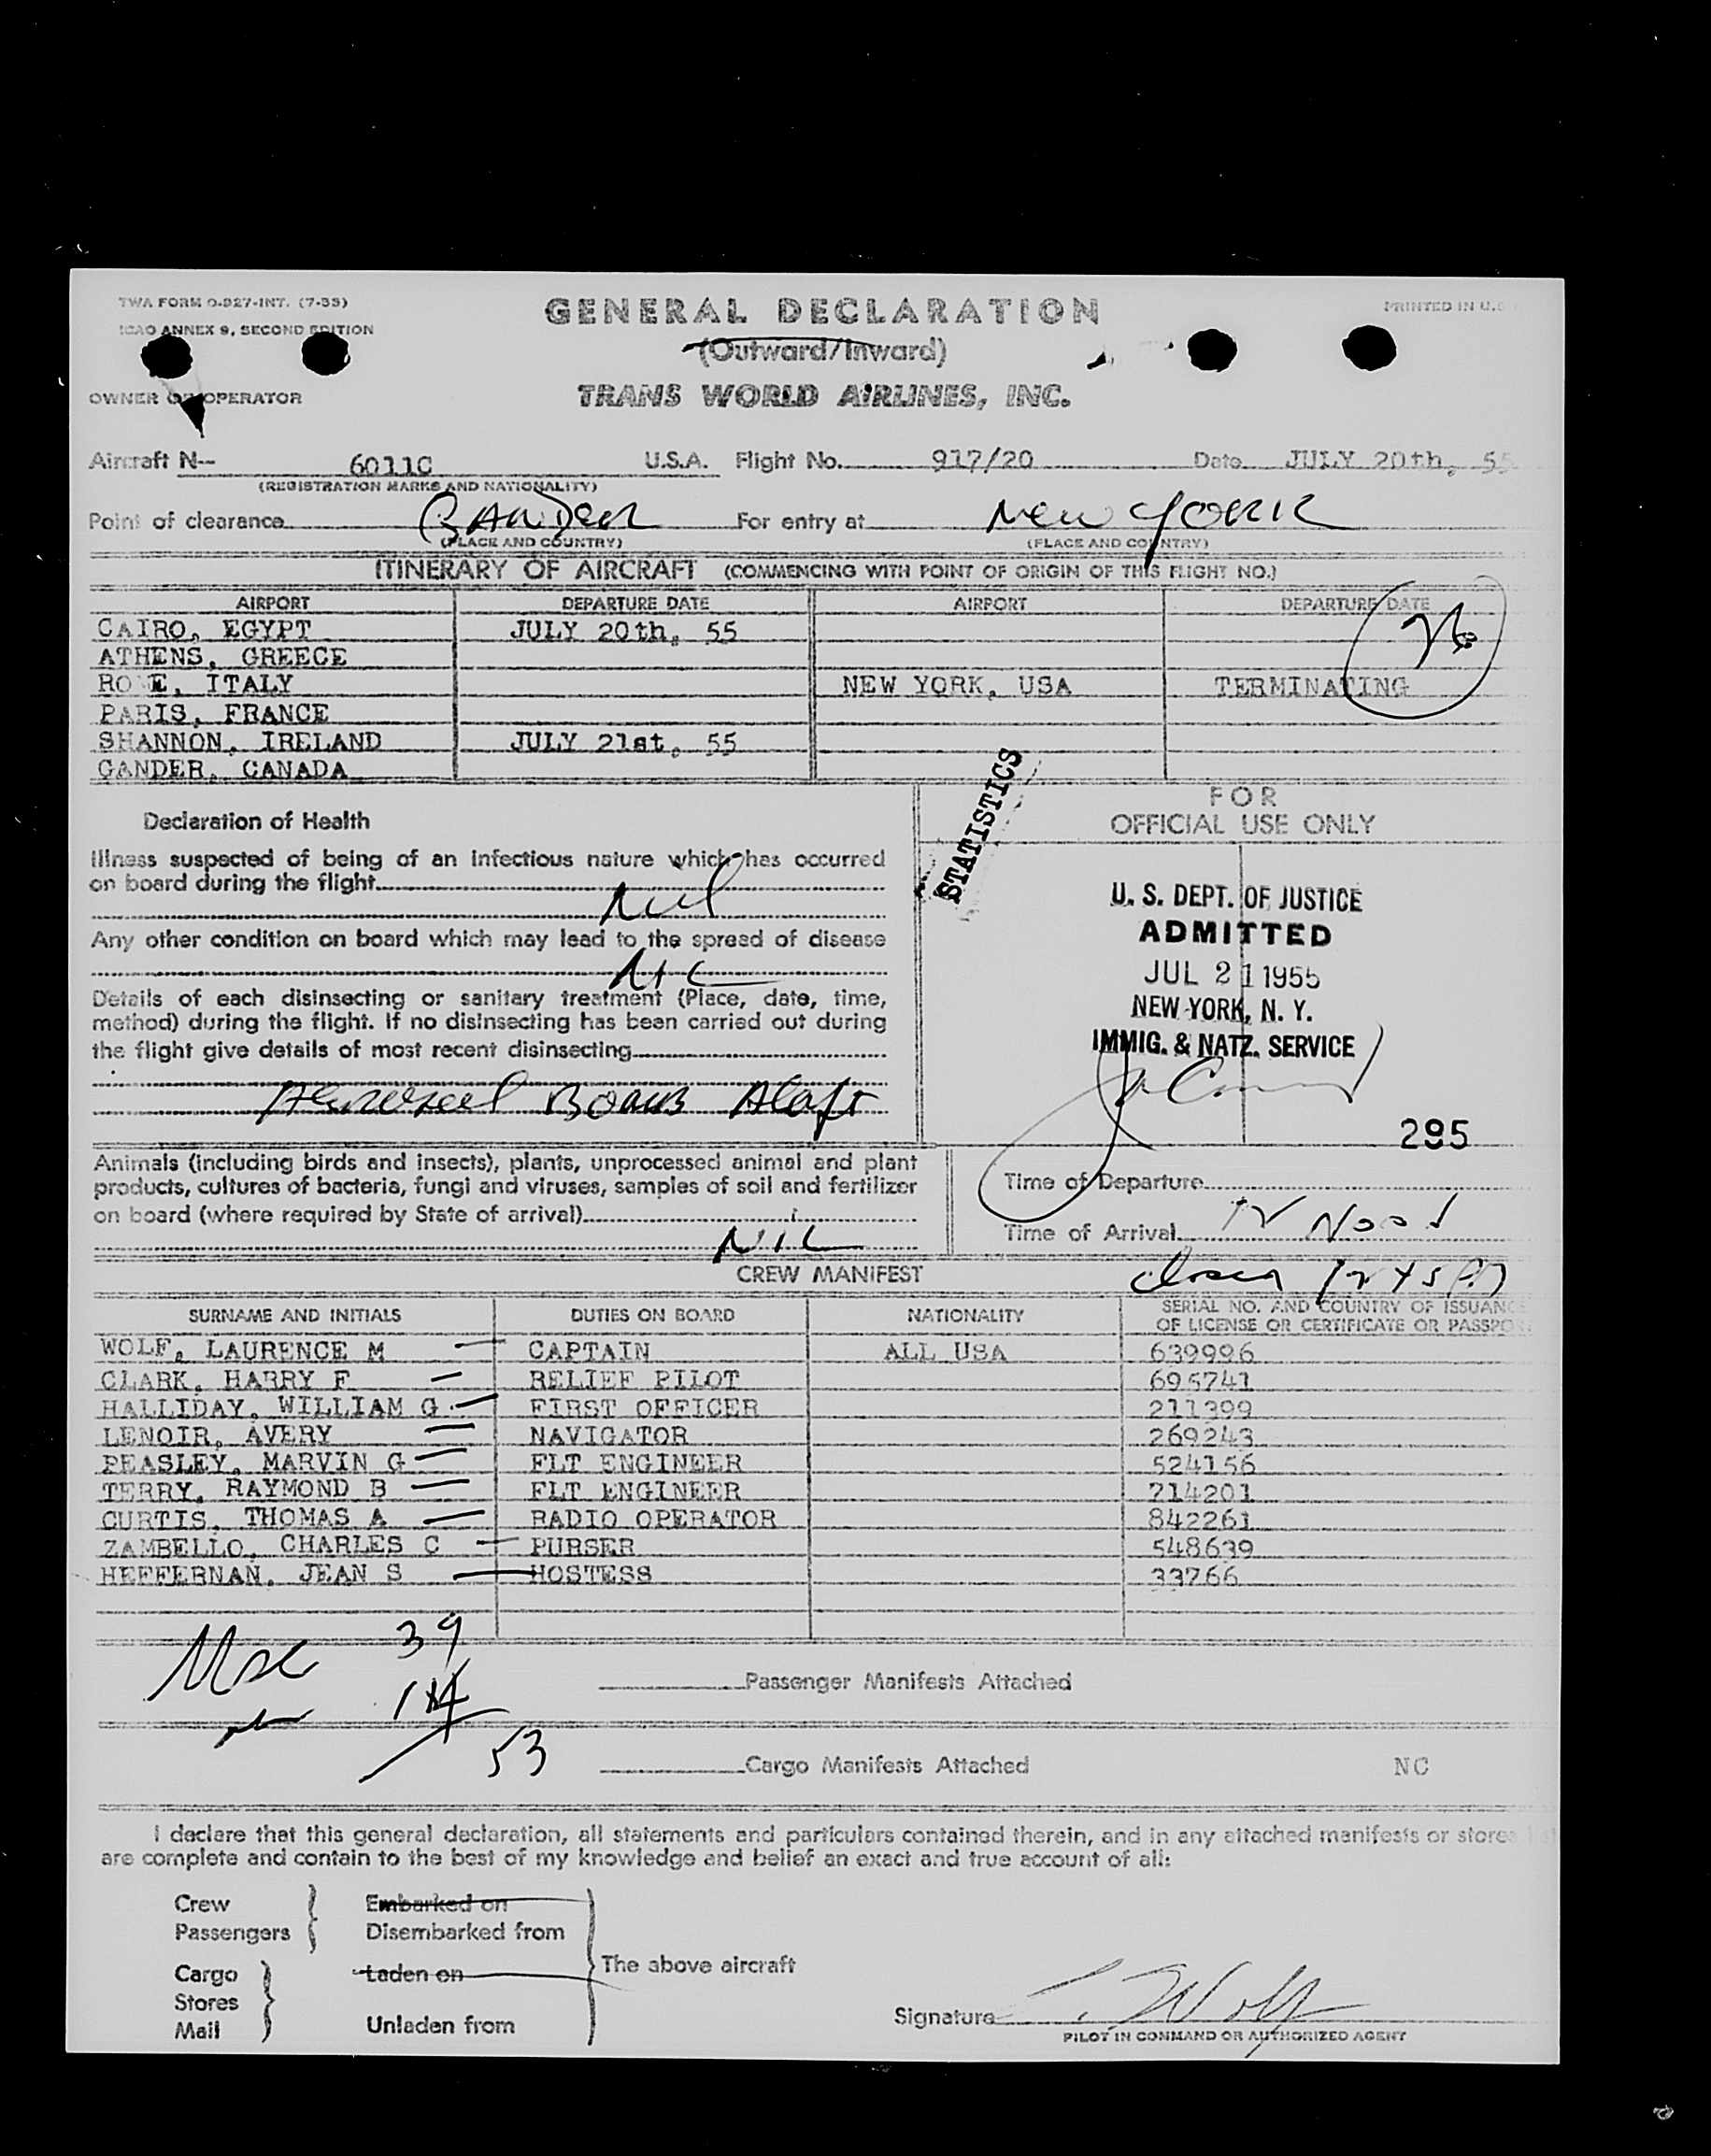 TWA FORM O-927-INT. (7-55)
GENERAL DECLARATION
PRINTED IN U.S
ICAO ANNEX 9, SECOND EDITION
(Outward/Inward)
OWNER OR OPERATOR
TRANS WORLD AIRLINES, INC.
Aircraft N-- 6011C U.S.A. Flight No. 917/20 Date JULY 20th, 55
(REGISTRATION MARKS AND NATIONALITY)
Point of clearance GANDER For entry at New YORK
(PLACE AND COUNTRY) (PLACE AND COUNTRY)
ITINERARY OF AIRCRAFT (COMMENCING WITH POINT OF ORIGIN OF THIS FLIGHT NO.)
AIRPORT DEPARTURE DATE AIRPORT DEPARTURE DATE
CAIRO, EGYPT JULY 20th, 55
ATHENS, GREECE
ROME, ITALY NEW YORK, USA TERMINATING
PARIS, FRANCE
SHANNON, IRELAND JULY 21st, 55
GANDER, CANADA
STATISTICS
FOR
OFFICIAL USE ONLY
Declaration of Health
Illness suspected of being of an infectious nature which has occurred
on board during the flight
Nil
Any other condition on board which may lead to the spread of disease
NIL
Details of each disinsecting or sanitary treatment (Place, date, time,
method) during the flight. If no disinsecting has been carried out during
the flight give details of most recent disinsecting
Aerosol Bomb Aloft
U. S. DEPT. OF JUSTICE
ADMITTED
JUL 21 1955
NEW YORK, N. Y.
IMMIG. & NATZ. SERVICE
295
Animals (including birds and insects), plants, unprocessed animal and plant
products, cultures of bacteria, fungi and viruses, samples of soil and fertilizer
on board (where required by State of arrival)
NIL
Time of Departure
Time of Arrival 12 Noon
CREW MANIFEST
1245 PM
SURNAME AND INITIALS DUTIES ON BOARD NATIONALITY SERIAL NO. AND COUNTRY OF ISSUANCE
OF LICENSE OR CERTIFICATE OR PASSPO
WOLF, LAURENCE M CAPTAIN ALL USA 639996
CLARK, HARRY F RELIEF PILOT 695741
HALLIDAY, WILLIAM G FIRST OFFICER 211399
LENOIR, AVERY NAVIGATOR 269243
PEASLEY, MARVIN G FLT ENGINEER 524156
TERRY, RAYMOND B FLT ENGINEER 214201
CURTIS, THOMAS A RADIO OPERATOR 842261
ZAMBELLO, CHARLES C PURSER 548639
HEFFERNAN, JEAN S HOSTESS 33766
39
14
Passenger Manifests Attached
53
Cargo Manifests Attached NC
I declare that this general declaration, all statements and particulars contained therein, and in any attached manifests or stores
are complete and contain to the best of my knowledge and belief an exact and true account of all:
Crew Embarked on
Passengers Disembarked from
The above aircraft
Cargo Laden on
Stores
Mail Unladen from
Signature L Wolf
PILOT IN COMMAND OR AUTHORIZED AGENT